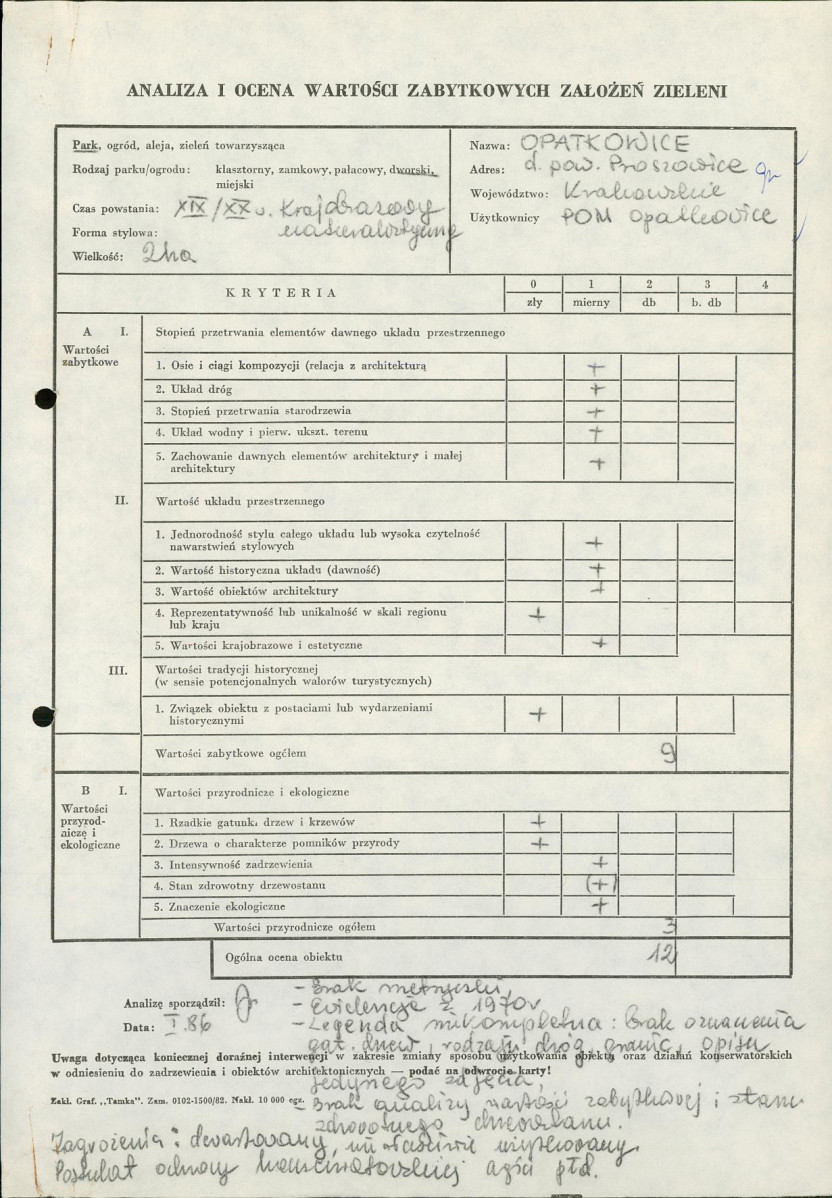 ANALIZA I OCENA WARTOŚCI ZABYTKOWYCH ZAŁOŻEŃ ZIELENI
Park, ogród, aleja, zieleń towarzysząca
Rodzaj parku/ogrodu: klasztorny, zamkowy, pałacowy, dworski,
miejski
Czas powstania: XIX/XX w. Krajobrazowy
Forma stylowa: naturalistyczny
Wielkość: 2ha
Nazwa: OPATKOWICE
Adres: d. pow. Proszowice
Województwo: Krakowskie
Użytkownicy POM Opatkowice
KRYTERIA
0 1 2 3 4
zły mierny db b. db
A I. Stopień przetrwania elementów dawnego układu przestrzennego
Wartości
zabytkowe
1. Osie i ciągi kompozycji (relacja z architekturą +
2. Układ dróg +
3. Stopień przetrwania starodrzewia +
4. Układ wodny i pierw. ukszt. terenu +
5. Zachowanie dawnych elementów architektury i małej
architektury +
II. Wartość układu przestrzennego
1. Jednorodność stylu całego układu lub wysoka czytelność
nawarstwień stylowych +
2. Wartość historyczna układu (dawność) +
3. Wartość obiektów architektury +
4. Reprezentatywność lub unikalność w skali regionu
lub kraju +
5. Wartości krajobrazowe i estetyczne +
III. Wartości tradycji historycznej
(w sensie potencjonalnych walorów turystycznych)
1. Związek obiektu z postaciami lub wydarzeniami
historycznymi +
Wartości zabytkowe ogółem 9
B I. Wartości przyrodnicze i ekologiczne
Wartości
przyrod-
niczę i
ekologiczne
1. Rzadkie gatunki drzew i krzewów +
2. Drzewa o charakterze pomników przyrody +
3. Intensywność zadrzewienia +
4. Stan zdrowotny drzewostanu (+)
5. Znaczenie ekologiczne +
Wartości przyrodnicze ogółem 3
Ogólna ocena obiektu 12
- Brak metryczki,
Analizę sporządził:
- Ewidencja z 1970r
Data: I.86
- Legenda niekompletna: brak oznaczenia
gat. drzew, rodzaju dróg, granic, opisu
Uwaga dotycząca koniecznej doraźnej interwencji w zakresie zmiany sposobu użytkowania obiektu oraz działań konserwatorskich
w odniesieniu do zadrzewienia i obiektów architektonicznych — podać na odwrocie karty!
jedynego zdjęcia,
Zakł. Graf. „Tamka". Zam. 0102-1500/82. Nakł. 10 000 egz.
- Brak analizy wartości zabytkowej i stanu
zdrowotnego drzewostanu.
Zagrożenia: dewastowany, niewłaściwie użytkowany.
Postulat ochrony konserwatorskiej części płd.